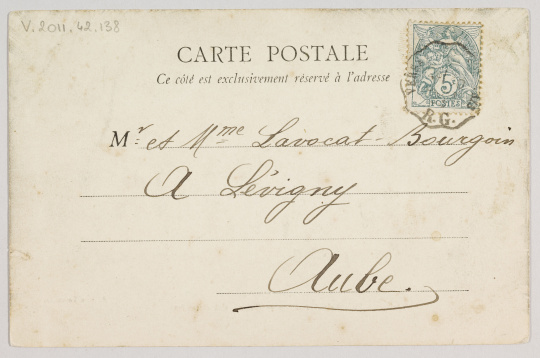 V.2011.42.138
CARTE POSTALE
Ce côté est exclusivement réservé à l'adresse
5c
POSTES
R.G.
Mr et Mme Lavocat-Bourgoin
A Lévigny
Aube.